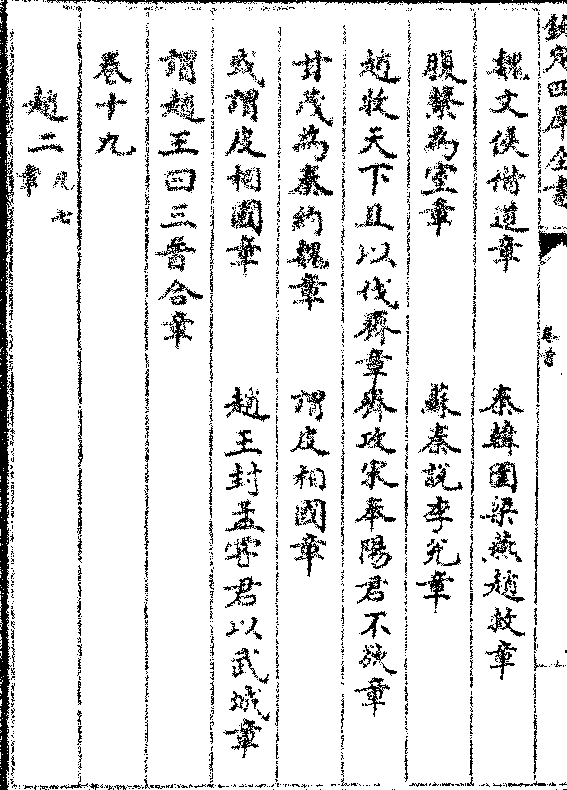 欽定四庫全書
卷首
魏文侯借道章　秦韓圍梁燕趙救章
腹擊為室章　蘇秦說李兌章
趙收天下且以伐齊章　齊攻宋奉陽君不欲章
甘茂為秦約魏章　謂皮相國章
或謂皮相國章　趙王封孟嘗君以武城章
謂趙王曰三晉合章
卷十九
趙二凡七章